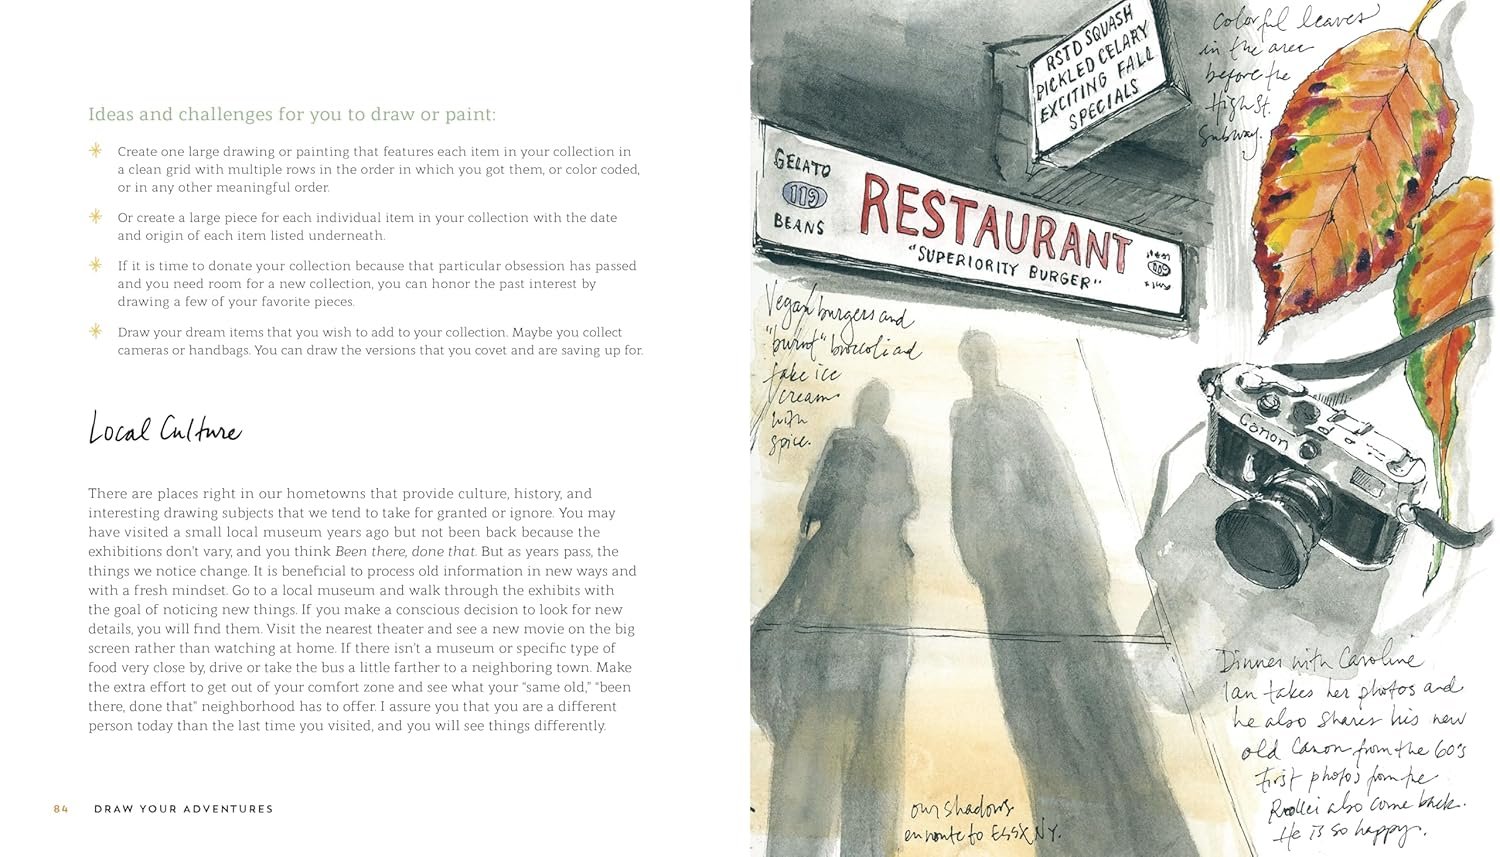 Ideas and challenges for you to draw or paint:
Create one large drawing or painting that features each item in your collection in
a clean grid with multiple rows in the order in which you got them, or color coded,
or in any other meaningful order.
Or create a large piece for each individual item in your collection with the date
and origin of each item listed underneath.
If it is time to donate your collection because that particular obsession has passed
and you need room for a new collection, you can honor the past interest by
drawing a few of your favorite pieces.
Draw your dream items that you wish to add to your collection. Maybe you collect
cameras or handbags. You can draw the versions that you covet and are saving up for.
Local Culture
There are places right in our hometowns that provide culture, history, and
interesting drawing subjects that we tend to take for granted or ignore. You may
have visited a small local museum years ago but not been back because the
exhibitions don't vary, and you think Been there, done that. But as years pass, the
things we notice change. It is beneficial to process old information in new ways and
with a fresh mindset. Go to a local museum and walk through the exhibits with
the goal of noticing new things. If you make a conscious decision to look for new
details, you will find them. Visit the nearest theater and see a new movie on the big
screen rather than watching at home. If there isn't a museum or specific type of
food very close by, drive or take the bus a little farther to a neighboring town. Make
the extra effort to get out of your comfort zone and see what your “same old,” “been
there, done that” neighborhood has to offer. I assure you that you are a different
person today than the last time you visited, and you will see things differently.
84 DRAW YOUR ADVENTURES
RSTD SQUASH
PICKLED CELARY
EXCITING FALL
SPECIALS
GELATO
119
BEANS
RESTAURANT
"SUPERIORITY BURGER"
colorful leaves
in the area
before the
High St.
Subway.
Vegan burgers and
"burnt" broccoli and
fake ice
cream
with
spice.
Canon
Dinner with Caroline
Ian takes her photos and
he also shares his new
old Canon from the 60's
First photos from the
Rollei also come back.
He is so happy.
our shadows
en route to ESSX NY.